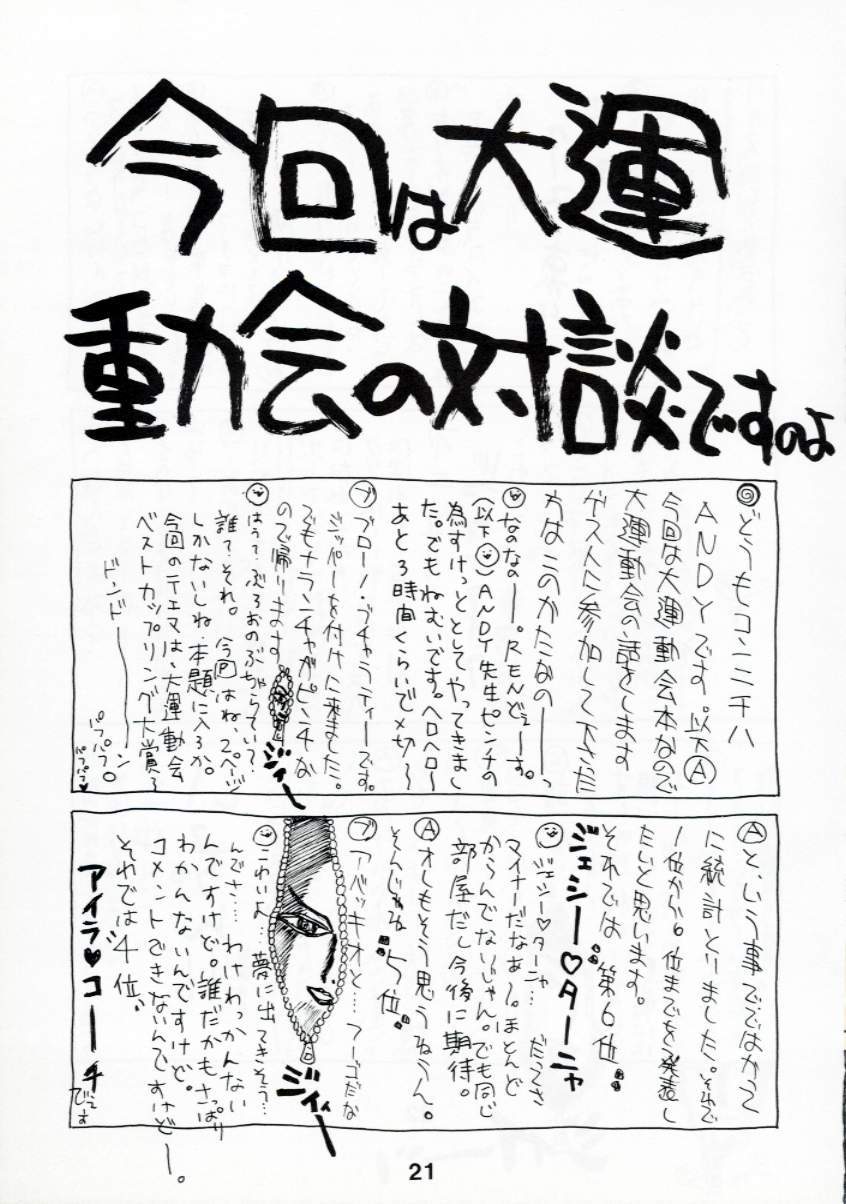 今回は大運
動会の対談ですのよ
どうもコンニチハ
ANDYです。以下Ⓐ
今回は大運動会本なので
大運動会の話をします
ゲストに参加して下さた
方はこのかたなの――っ
なのなのー。RENどぇーす。
(以下 )ANDY先生ピンチの
為すけっととしてやってきまし
た。でもねむいです。ヘロヘロ〜
あと3時間くらいで〆切〜
ブ ブローノ・ブチャラティーです。
ジッパーを付けに来ました。
でもナランチャがピンチな
ので帰ります
ジィー
はうて、ぶろおのぶちゃらていて
誰てそれ。今回はね、2ページ
しかないしね・本題に入ろか。
今回のテエマは、大運動会
ベストカップリング大賞〜
ドンドーーン
パフパフ。
パフパフ♥
Ⓐと、いう事でではかて
に統計とりました。それで
1位から6位までを発表し
たいと思います。
それでは"第6位"
ジェシー♡ターニャ
ジェシー♡ターニャ… だってさ
マイナーだなぁ〜。ほとんど
からんでないじゃん。でも同じ
部屋だし今後に期待。
Ⓐオレもそう思うねうん。
そんじゃね"5位"
ブ アバッキオと… フーゴだな
ジィィー
こわいよ…夢に出てきそう…
んでさ…わけわっかんない
んですけど。誰だかもさっぱり
わかんないんですけど。
コメントできないんですけどー。
それでは"4位"
アイラ♥コーチ
でてす
21